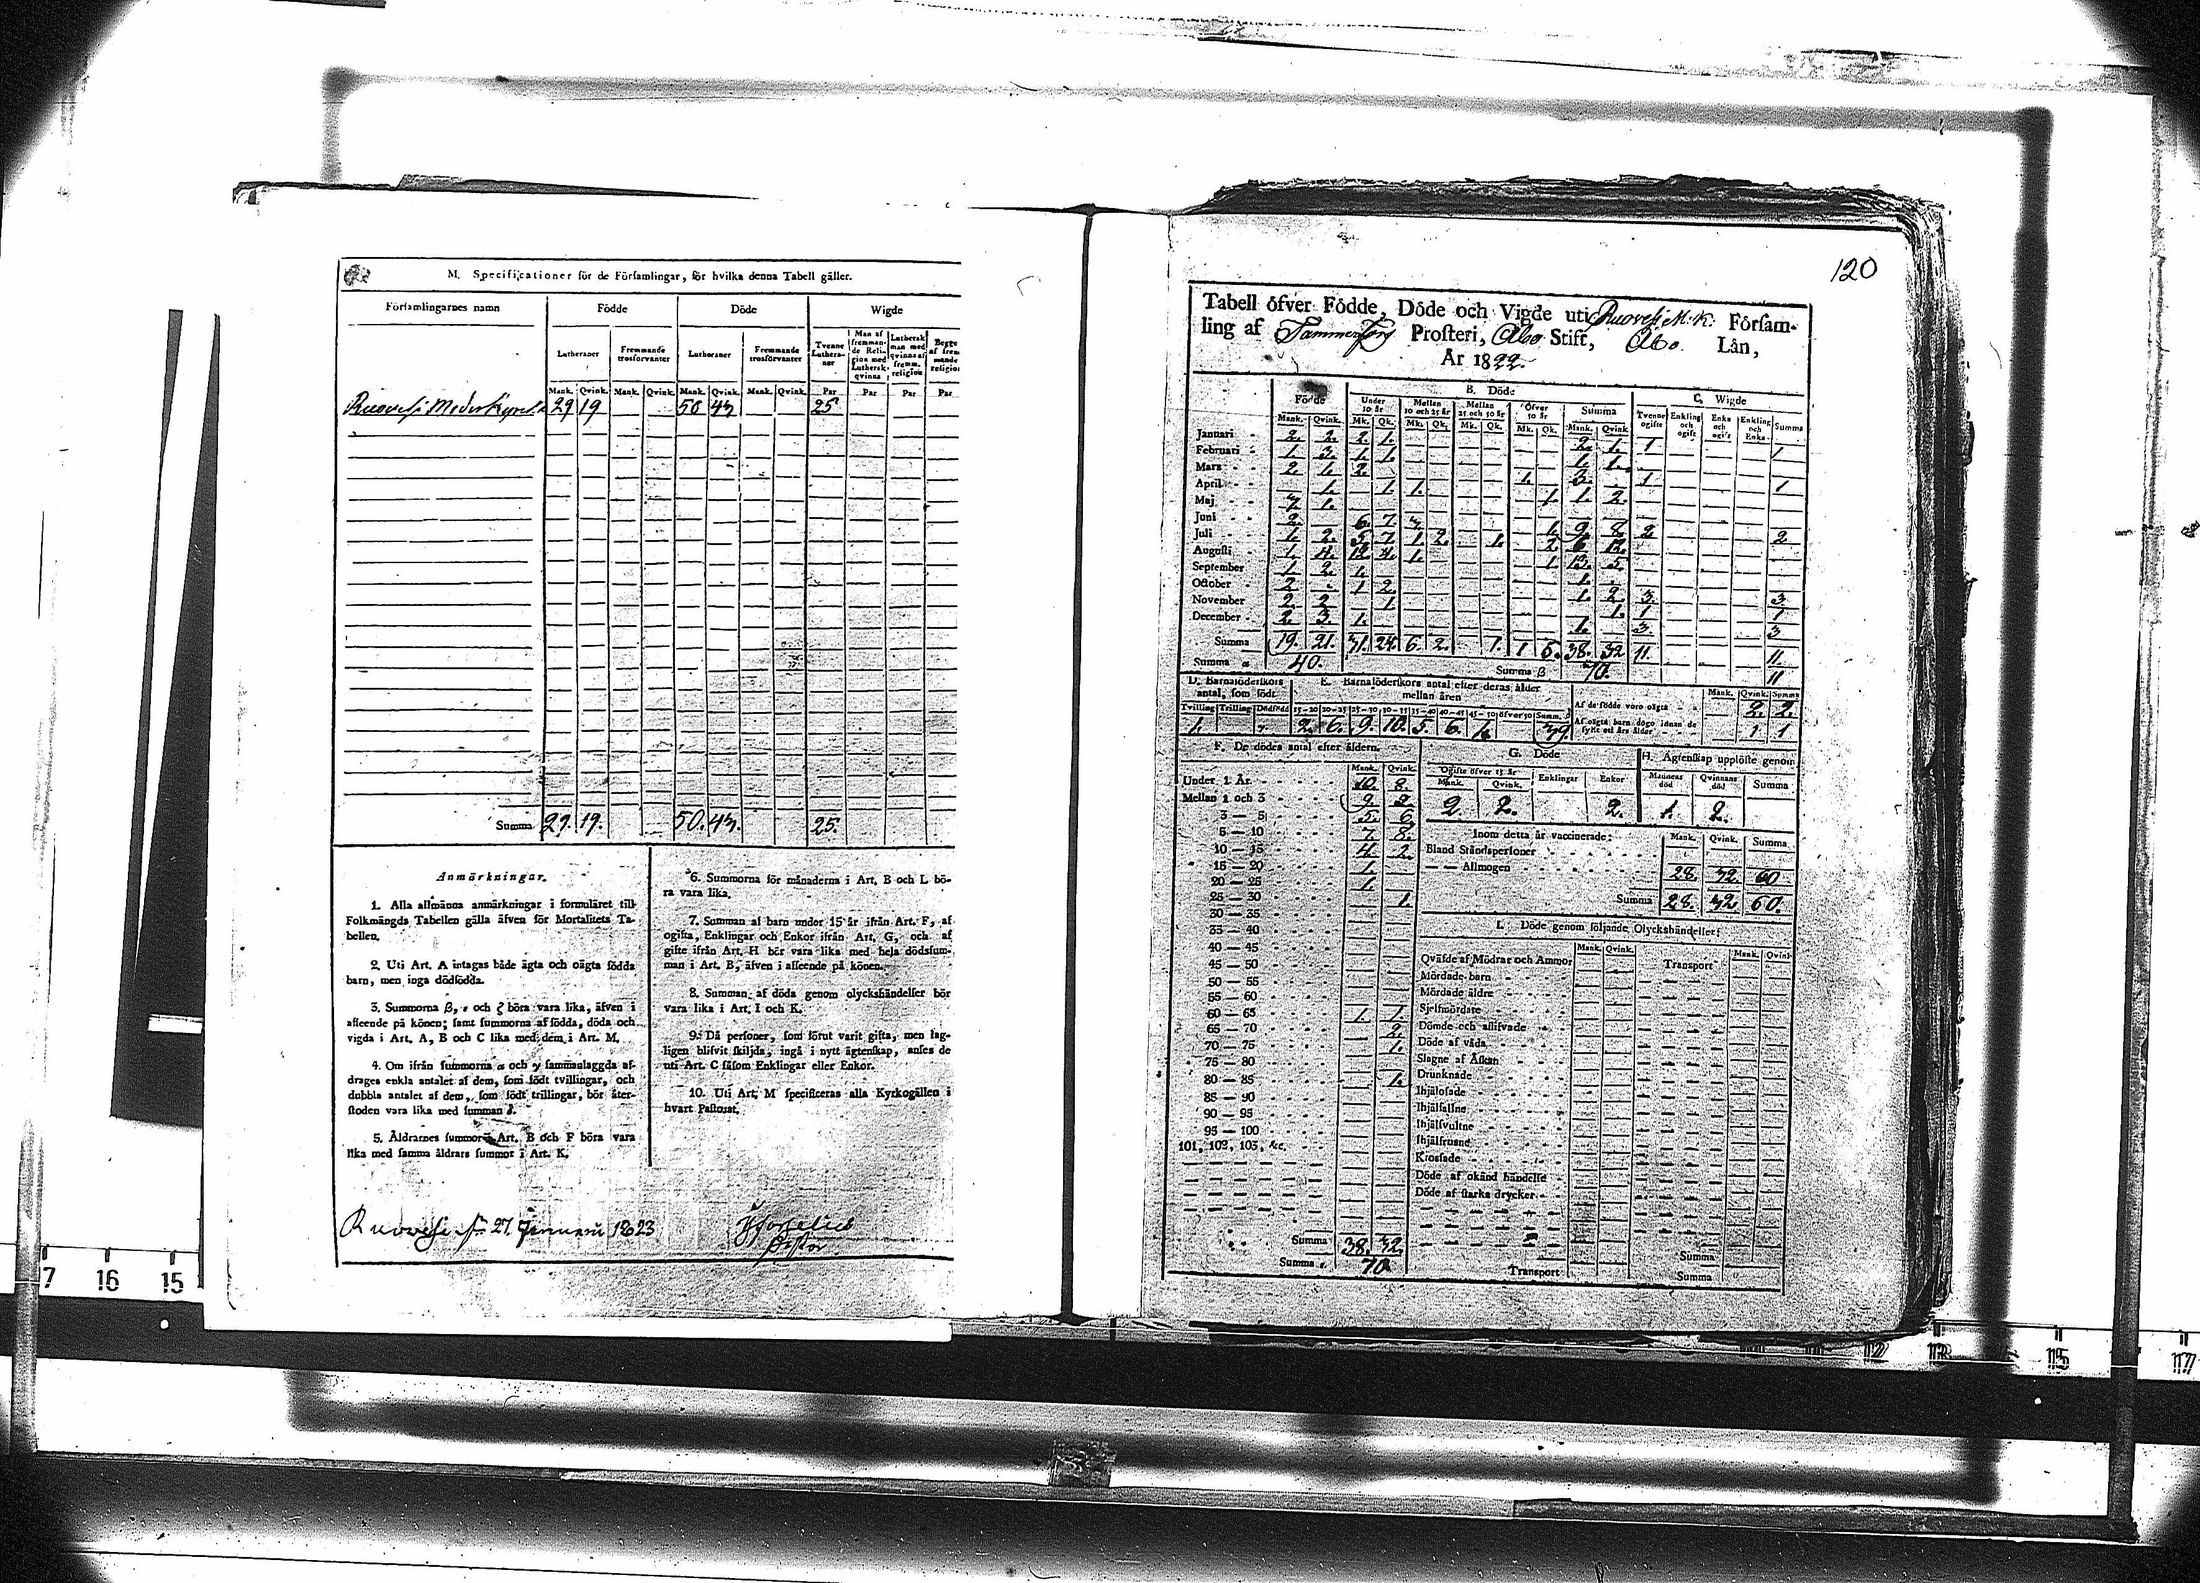 M. Specificationer för de Församlingar, för hvilka denna Tabell gäller.
Församlingarnes namn Födde Döde Wigde
Lutheraner Fremmande trosförvanter Lutheraner Fremmande trosförvanter Tvenne Lutheraner Man af fremmande Religion med Luthersk qvinna Luthersk man med qvinna af fremm. religion
Mank. Qvink. Mank. Qvink. Mank. Qvink. Mank. Qvink. Par Par Par Par
Ruovesi 29 19 50 43 25
Summa 29. 19. 50. 43. 25.
Anmärkningar.
1. Alla allmänna anmärkningar i formuläret till
Folkmängds Tabellen gälla äfven för Mortalitets Ta-
bellen.
2. Uti Art. A intagas både ägta och oägta födda
barn, men inga dödfödda.
3. Summorna β, ε och ζ böra vara lika, äfven i
afseende på könen; samt summorna af födda, döda och
vigda i Art. A, B och C lika med dem i Art. M.
4. Om ifrån summorna α och γ sammanlaggda af-
drages enkla antalet af dem, som födt tvillingar, och
dubbla antalet af dem, som födt trillingar, bör åter-
stoden vara lika med summan δ.
5. Åldrarnes summor i Art. B och F böra vara
lika med samma åldrars summor i Art. K.
6. Summorna för månaderna i Art. B och L bö-
ra vara lika.
7. Summan af barn under 15 år ifrån Art. F, af
ogifta, Enklingar och Enkor ifrån Art. G, och af
gifte ifrån Art. H bör vara lika med hela dödssum-
man i Art. B, äfven i afseende på könen.
8. Summan af döda genom olyckshändelser bör
vara lika i Art. I och K.
9. Då personer, som förut varit gifta, men lag-
ligen blifvit skiljda, ingå i nytt ägtenskap, anses de
uti Art. C såsom Enklingar eller Enkor.
10. Uti Art. M specificeras alla Kyrkogällen i
hvart Pastorat.
Ruovesi 27 Januari 1823
Pastor
120
Tabell öfver Födde, Döde och Vigde uti Ruovesi M.K. Försam-
ling af Tammerfors Prosteri, Åbo Stift, Åbo Län,
År 1822.
Födde B. Döde C. Wigde
Under 10 år Mellan 10 och 25 år Mellan 25 och 50 år Öfver 50 år Summa Tvenne ogifte Enkling och ogift Enka och ogift Enkling och Enka Summa
Mank. Qvink. Mk. Qk. Mk. Qk. Mk. Qk. Mk. Qk. Mank. Qvink
Januari 2. 2. 2. 1. 2. 1. 1 1
Februari 1. 3. 1. 1. 1. 1.
Mars 2. 1. 2. 1. 3. 1 1
April 1. 1. 1. 1. 1. 2.
Maj 7. 1.
Juni 2. 6. 7. 1. 9. 8. 2 2
Juli 1. 2. 5. 7. 1. 2. 1. 2. 6. 12.
Augusti 1. 4. 12. 4. 1. 1 13. 5.
September 1. 2. 1. 1.
October 2. 1 2. 1. 2. 3. 3.
November 2. 2. 1. 1. 1 1
December 2. 3. 1. 1. 3. 3
Summa 19. 21. 31. 24. 6. 2. 1. 1 5. 38. 32. 11. 11.
Summa α 40. Summa β 70. 11
D. Barnaföderskors antal, som födt
Tvilling Trilling Dödfödd
1.
E. Barnaföderskors antal efter deras ålder mellan åren
15-20 20-25 25-30 30-35 35-40 40-45 45-50 öfver 50 Summ.
2. 6. 9. 10. 5. 6. 1. 39
Mank. Qvink. Summa
Af de födde voro oägta 2. 2.
Af oägta barn dogo innan de fyllt ett års ålder 1 1
F. De dödes antal efter åldern.
Mank. Qvink.
Under 1 År. 10. 8.
Mellan 1 och 3 9. 2
3 — 5 5. 6
5 — 10 7. 8.
10 — 15 4. 2.
15 — 20 1.
20 — 25 1.
25 — 30 1.
30 — 35
35 — 40
40 — 45
45 — 50
50 — 55
55 — 60
60 — 65 1. 1.
65 — 70 2.
70 — 75 1.
75 — 80
80 — 85 1.
85 — 90
90 — 95
95 — 100
101, 102, 103, &c.
Summa 38. 32.
Summa ε 70
G. Döde
Ogifte öfver 15 år Enklingar Enkor
Mank. Qvink.
2. 2. 2.
H. Ägtenskap upplöste genom
Mannens död Qvinnans död Summa
1. 2.
Inom detta år vaccinerade: Mank. Qvink. Summa
Bland Ståndspersoner
— — Allmogen 28. 32. 60
Summa 28. 32 60.
I. Döde genom följande Olyckshändelser:
Mank. Qvink. Mank. Qvink
Qväfde af Mödrar och Ammor Transport
Mördade barn
Mördade äldre
Sjelfmördare
Dömde och aflifvade
Döde af våda
Slagne af Åskan
Drunknade
Ihjälosade
Ihjälfallne
Ihjälsvultne
Ihjälfrusne
Krossade
Döde af okänd händelse
Döde af starka drycker
Summa
Transport Summa